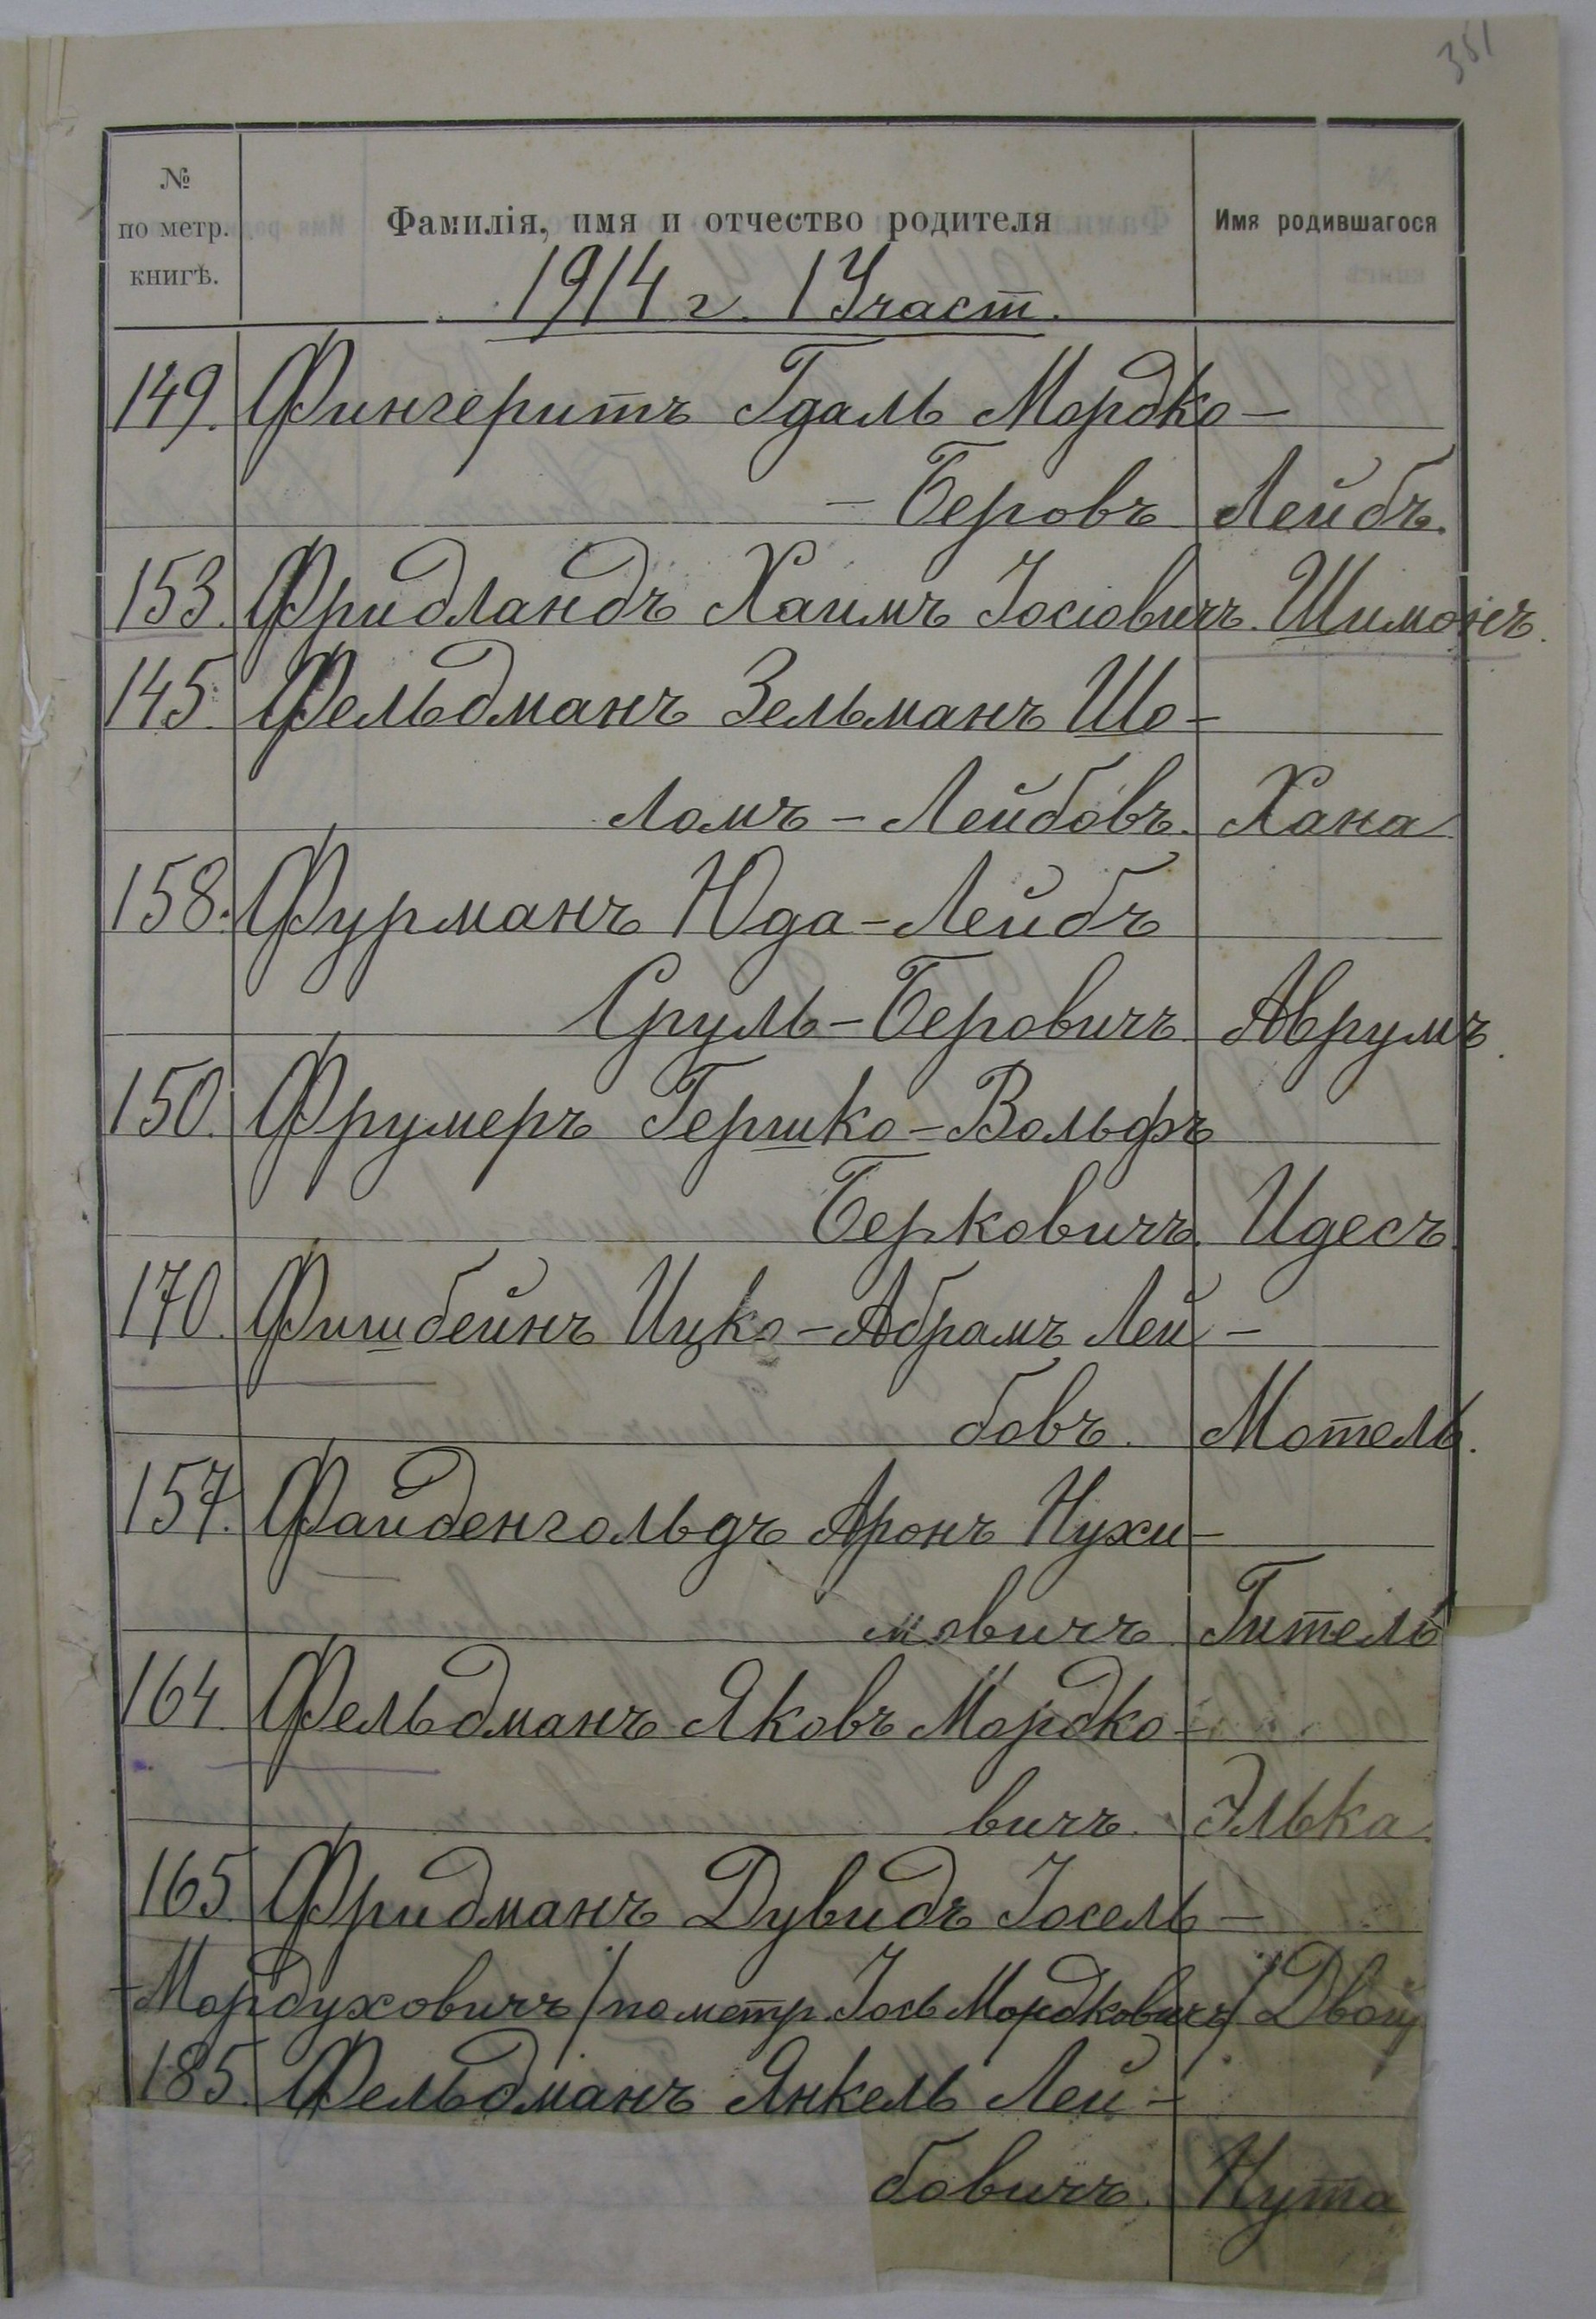 351
№ по метр. книгѣ.
Фамилія, имя и отчество родителя
Имя родившагося
1914 г. 1 Участ.
149. Фингеритъ Гдаль Мордко-
- Беровъ Лейбъ.
153. Фридландъ Хаимъ Іосіовичъ. Шимонъ.
145. Фельдманъ Зельманъ Шо-
ломъ - Лейбовъ. Хана
158. Фурманъ Юда - Лейбъ
Сруль - Беровичъ. Аврумъ.
150. Фрумеръ Гершко - Вольфъ
Берковичъ. Идесъ.
170. Фишбейнъ Ицко - Абрамъ Лей-
бовъ. Мотель.
157. Файденгольдъ Аронъ Нухи-
мовичъ. Гитель
164. Фельдманъ Яковъ Мордко-
вичъ. Элька.
165. Фридманъ Дувидъ Іосель-
- Мордуховичъ /по метр. Іось Мордковичъ/
185. Фельдманъ Янкель Лей-
бовичъ. Нута